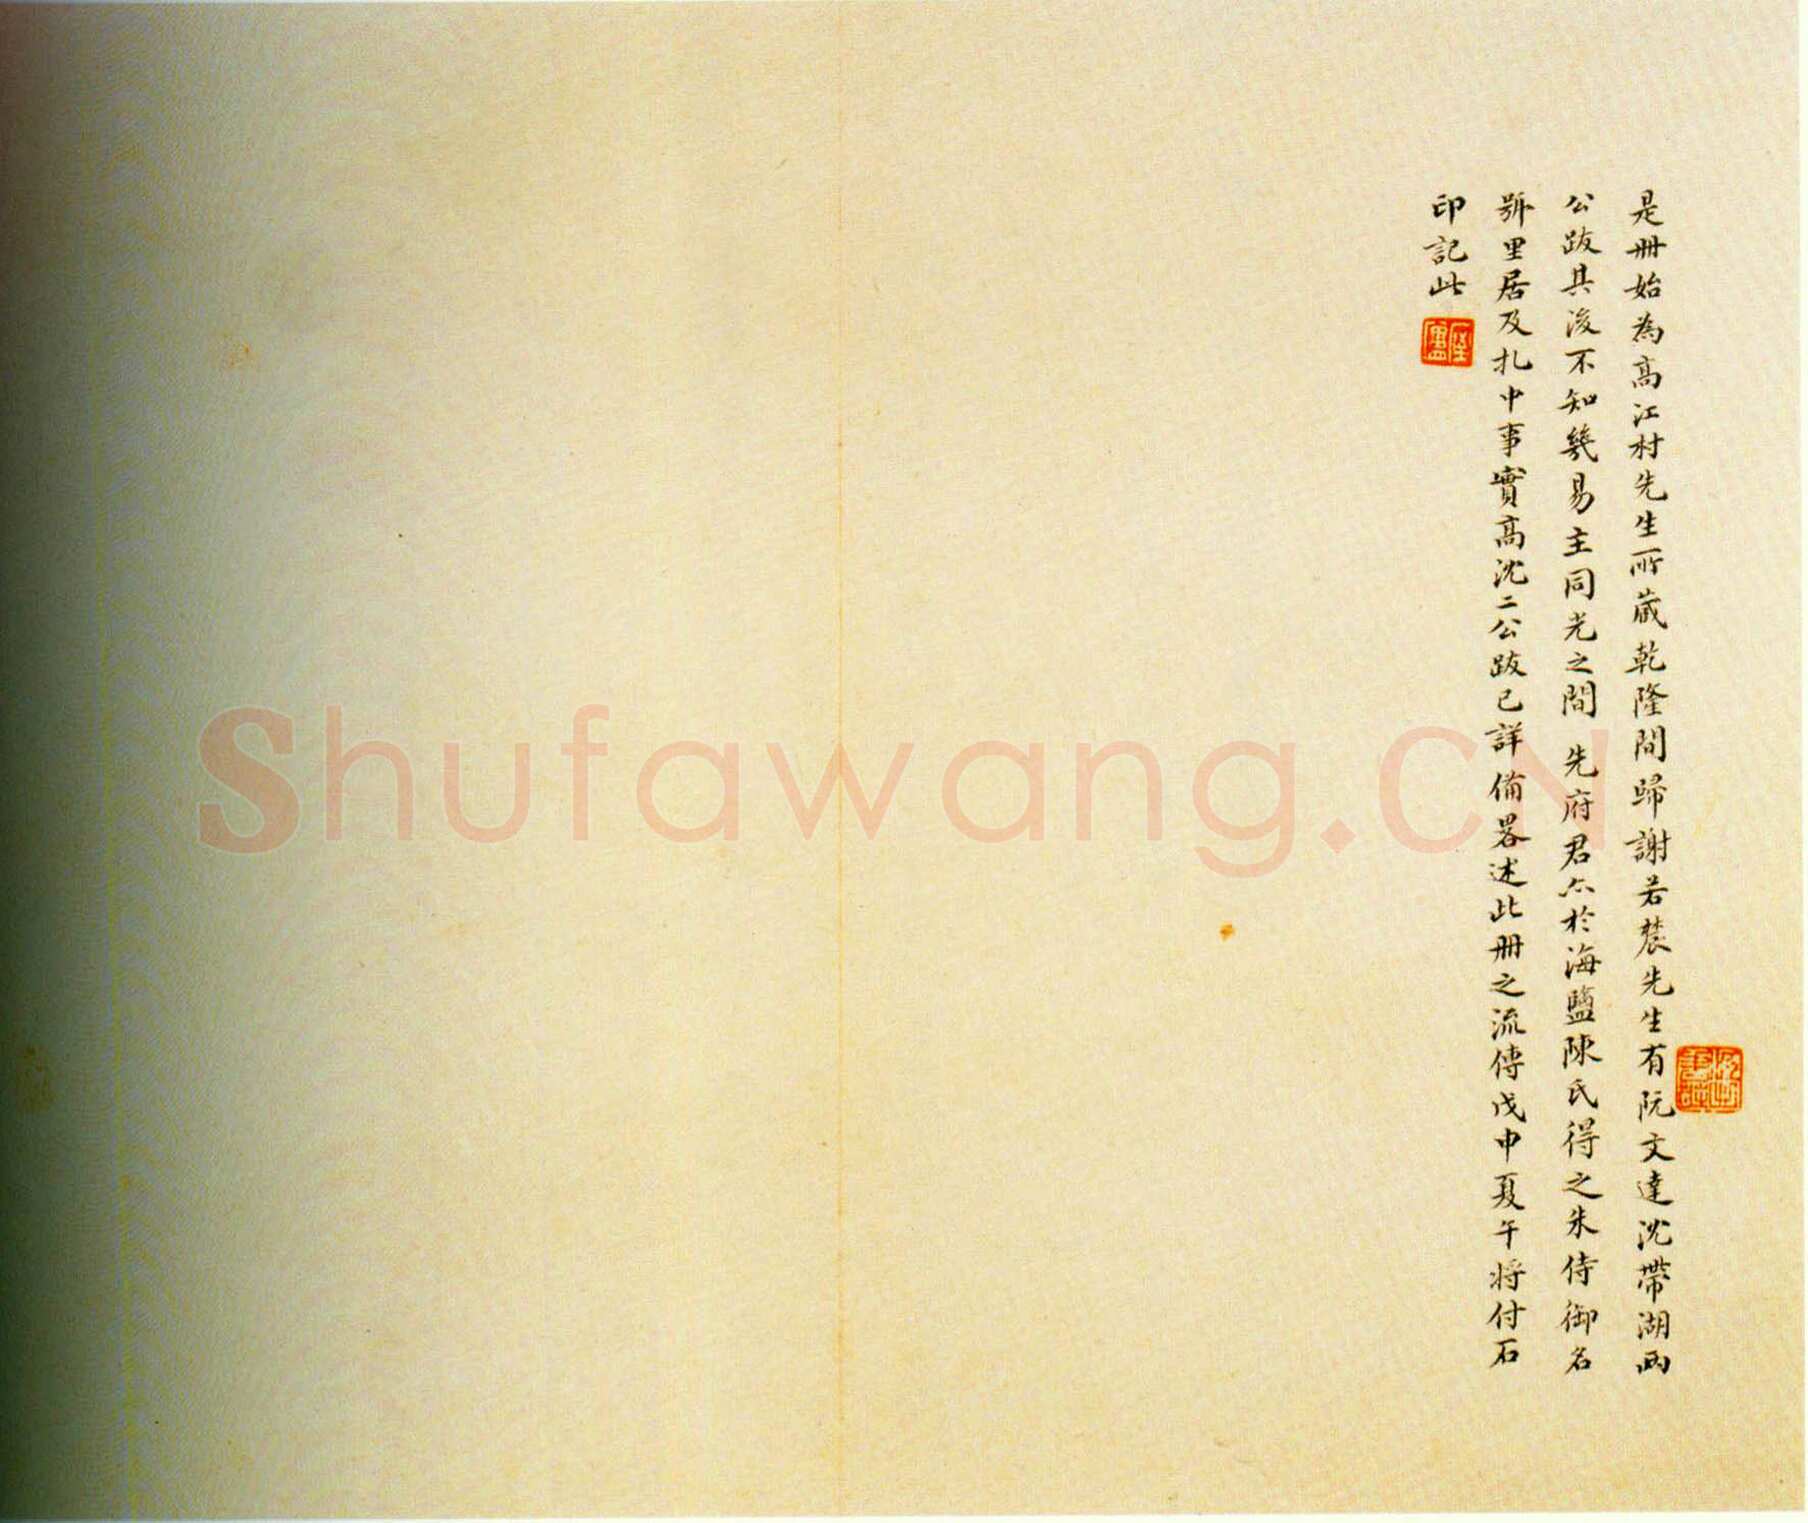 是册始為高江村先生所蔵乾隆間歸謝若農先生有阮文達沈帶湖兩
公跋其後不知幾易主同光之間 先府君六於海鹽陳氏得之朱侍御名
號里居及札中事實高沈二公跋已詳備畧述此册之流傳戊申夏午将付石
印記此
Shufawang.CN